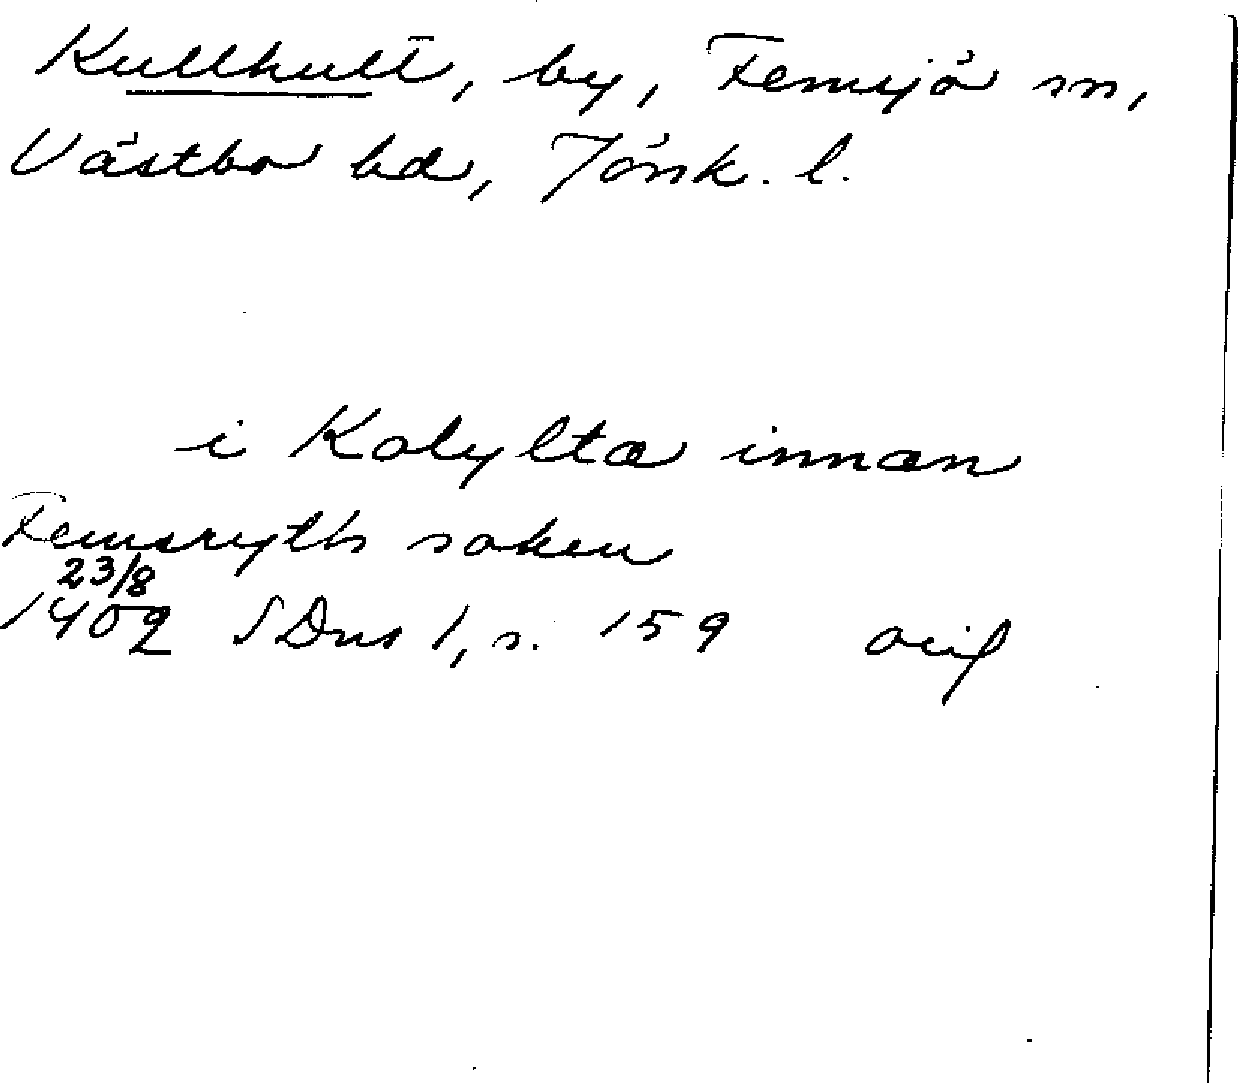 Kullhult, by, Femsjö sn,
Västbo hd, Jönk. l.
i Kolylta innan
Femsryth soken
23/8
1402 SDns 1, s. 159 orig